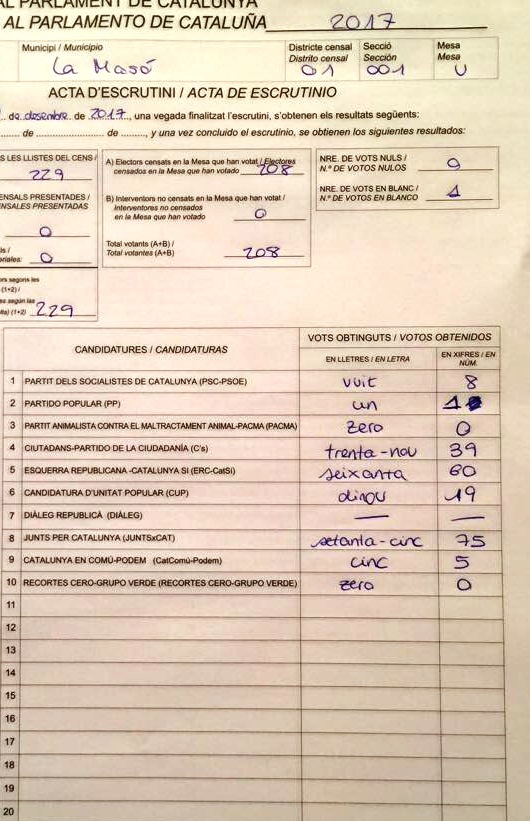 AL PARLAMENT DE CATALUNYA
AL PARLAMENTO DE CATALUÑA 2017
Municipi / Municipio
La Masó
Districte censal
Distrito censal
01
Secció
Sección
001
Mesa
Mesa
U
ACTA D'ESCRUTINI / ACTA DE ESCRUTINIO
de desembre de 2017, una vegada finalitzat l'escrutini, s'obtenen els resultats següents:
de de , y una vez concluido el escrutinio, se obtienen los siguientes resultados:
S LES LLISTES DEL CENS /
229
ENSALS PRESENTADES /
NSALES PRESENTADAS
0
ls /
oriales: 0
ors segons les
(1+2) /
es según las
lta) (1+2) 229
A) Electors censats en la Mesa que han votat / Electores
censados en la Mesa que han votado 208
B) Interventors no censats en la Mesa que han votat /
Interventores no censados
en la Mesa que han votado 0
Total votants (A+B) /
Total votantes (A+B) 208
NRE. DE VOTS NULS /
N.º DE VOTOS NULOS 0
NRE. DE VOTS EN BLANC /
N.º DE VOTOS EN BLANCO 1
CANDIDATURES / CANDIDATURAS
VOTS OBTINGUTS / VOTOS OBTENIDOS
EN LLETRES / EN LETRA
EN XIFRES / EN NÚM.
1 PARTIT DELS SOCIALISTES DE CATALUNYA (PSC-PSOE) vuit 8
2 PARTIDO POPULAR (PP) un 1
3 PARTIT ANIMALISTA CONTRA EL MALTRACTAMENT ANIMAL-PACMA (PACMA) zero 0
4 CIUTADANS-PARTIDO DE LA CIUDADANÍA (C's) trenta-nou 39
5 ESQUERRA REPUBLICANA -CATALUNYA SI (ERC-CatSí) seixanta 60
6 CANDIDATURA D'UNITAT POPULAR (CUP) dinou 19
7 DIÀLEG REPUBLICÀ (DIÀLEG) — —
8 JUNTS PER CATALUNYA (JUNTSxCAT) setanta-cinc 75
9 CATALUNYA EN COMÚ-PODEM (CatComú-Podem) cinc 5
10 RECORTES CERO-GRUPO VERDE (RECORTES CERO-GRUPO VERDE) zero 0
11
12
13
14
15
16
17
18
19
20